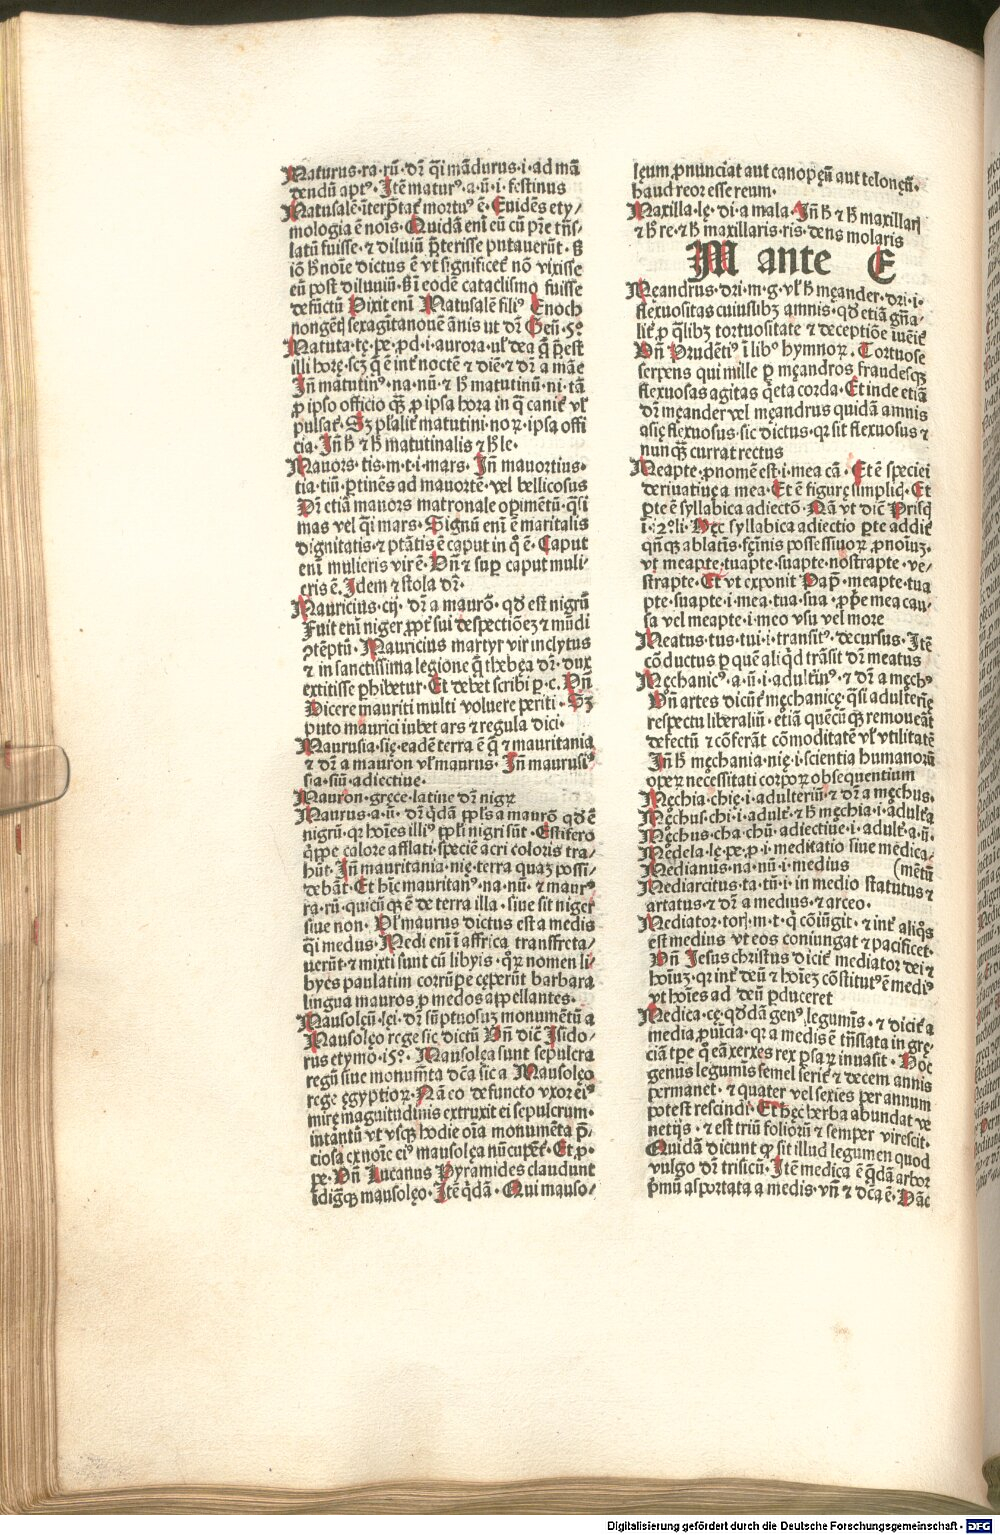 Maturus·ra·rū·dr̄ q̄i mādurus·i·ad mā
dendū aptꝰ·Itē maturꝰ·a·ū·i·festinus
Matusalē·īterp̄tat̄ mortuꝰ ē·Euidēs ety/
mologia ē nois·Quidā enī eū cū pr̄e trās/
latū fuisse·⁊ diluuiū p̄terisse putauerūt·
iō h̄ noīe dictus ē vt significet̄ nō vixisse
eū post diluuiū· ī eodē cataclismo fuisse
defūctū Dixit enī Matusalē filiꝰ Enoch
nongēti sexagītanouē ānis ut dr̄ Geñ·5°
Matuta·tę·pe·pd·i·aurora·uł dea q̄ p̄est
illi horę·scʒ q̄ ē int̄ noctē ⁊ diē·⁊ dr̄ a māe
Iñ matutinꝰ·na·nū·⁊ h̄ matutinū·ni·tā
ꝓ ipso officio qȝ ꝓ ipsa hora in q̄ canit̄ vł
pulsat̄·Sʒ pl̄alit̄ matutini·noꝝ·ipsa offi
cia·Iñ h̄ ⁊ h̄ matutinalis ⁊ h̄ le·
Mauors·tis·m·t·i·mars·Iñ mauortius·
tia·tiū·ꝑtinēs ad mauortē·vel bellicosus
Dr̄ etiā mauors matronale opimētū·q̄si
mas vel q̄i mars·Signū enī ē maritalis
dignitatis·⁊ ptātis ē caput in q̊ ē·Caput
enī mulieris vir ē·Vñ ⁊ suꝑ caput muli/
eris ē·Idem ⁊ stola dr̄·
Mauricius·cij·dr̄ a maurō·qd̄ est nigrū
Fuit enī niger ꝓpt̄ sui despectiōeʒ ⁊ mūdi
ꝯtēptū·Mauricius martyr vir inclytus
⁊ in sanctissima legione q̄ thebęa dr̄·dux
extitisse ꝑhibetur·Et debet scribi ꝑ·c·Vñ
Dicere mauriti multi voluere periti·Sʒ
puto maurici iubet ars ⁊ regula dici·
Maurusia·się·eadē terra ē q̄ ⁊ mauritania
⁊ dr̄ a mauron vł maurus·Iñ maurusiꝰ
sia·siū·adiectiue·
Mauron·gręce·latine dr̄ nigꝝ
Maurus·a·ū·dr̄ q̄dā ppl̄s a maurō qd̄ ē
nigrū·qꝛ hoīes illiꝰ ppl̄i nigri sūt·Estifero
q̄ppe calore afflati·speciē acri coloris tra/
hūt·Iñ mauritania·nię·terra quaʒ possi/
debāt·Et hic mauritanꝰ·na·nū·⁊ maurꝰ
ra·rū·quicūqȝ ē de terra illa·siue sit niger
siue non·Vł maurus dictus est a medis
q̄i medus·Medi enī ī affrica transfreta/
uerūt·⁊ mixti sunt cū libyis·qꝛ nomen li/
byes paulatim corrūpe cęperūt barbara
lingua mauros ꝓ medos appellantes·
Mausolęū·lęi·dr̄ sūptuosuʒ monumētū a
Mausolęo rege sic dictū Vñ dic̄ Isido/
rus etymo·15°·Mausolęa sunt sepulcra
regū siue monumt̄a dc̄a sic a Mausolęo
rege ęgyptioꝝ·Nā eo defuncto vxor eiꝰ
mirę magnitudinis extruxit ei sepulcrum·
intantū vt vsqȝ hodie oīa monumēta p̄/
ciosa ex noīe eiꝰ mausolęa nūcupēt̄·Et ꝓ·
pe·Vñ Lucanus Pyramides claudunt
īdigq̄ȝ mausolęo·Itē q̄dā·Qui mauso/
lęum ꝓnunciat aut canopęū aut telonęū·
haud reor esse reum·
Maxilla·lę·di·a mala·Iñ h̄ ⁊ h̄ maxillari
⁊ h̄ re·⁊ h̄ maxillaris·ris·dens molaris
M ante E
Meandrus·dri·m·g·vł h̄ męander·dri·i·
flexuositas cuiuslibʒ amnis·qd̄ etiā gn̄a/
lit̄ ꝓ q̄libʒ tortuositate ⁊ deceptiōe iuēit̄
Vñ Prudētiꝰ ī libꝰ hymnoꝝ·Tortuose
serpens qui mille ꝑ męandros fraudesqȝ
flexuosas agitas q̄eta corda·Et inde etiā
dr̄ męander vel męandrus quidā amnis
asię flexuosus·sic dictus·qꝛ sit flexuosus ⁊
nunqȝ currat rectus
Meapte·ꝓnomē est·i·mea cā·Et ē speciei
deriuatiuę a mea·Et ē figurę simplicī·Et
pte ē syllabica adiectō·Nā vt dic̄ Prisci
ī·12°li·Hęc syllabica adiectio pte addit̄
qn̄qȝ ablatīs·fęīnis possessiuoꝝ ꝓnoīuʒ·
vt meapte·tuapte·suapte·nostrapte·ve/
strapte·Et vt exponit Pap̄·meapte·tua
pte·suapte·i·mea·tua·sua·ꝓp̄e mea cau/
sa vel meapte·i·meo vsu vel more
Meatus·tus·tui·i·transitꝰ·decursus·Itē
cōductus ꝑ quē aliq̊d trāsit dr̄ meatus
Męchanicꝰ·a·ū·i·adultīnꝰ·⁊ dr̄ a męchꝰ
Vñ artes dicūt̄ mechanicę·q̄si adulterīę
respectu liberaliū·etiā quēcūqȝ remoueāt
defectū ⁊ cōferāt cōmoditatē vł vtilitatē
Iñ h̄ męchania·nię·i·scientia humanorū
opeꝝ necessitati corpoꝝ obsequentium
Męchia·chię·i·adulteriū·⁊ dr̄ a męchus·
Męchus·chi·i·adult̄·⁊ h̄ męchia·i·adult̄a
Męchus·cha·chū·adiectiue·i·adult̄·a·ū·
Medela·lę·pe·ꝓ·i·meditatio siue medica/
Medianus·na·nū·i·medius (mētū
Mediarcitus·ta·tū·i·in medio statutus ⁊
artatus·⁊ dr̄ a medius·⁊ arceo·
Mediator·toꝝ·m·t·q̊ cōiūgit·⁊ int̄ aliq̊s
est medius vt eos coniungat ⁊ pacificet·
Vñ Iesus christus dicit̄ mediator dei ⁊
hoīuʒ·qꝛ int̄ deū ⁊ hoīeʒ cōstitutꝰ ē mediꝰ
vt hoīes ad deū ꝑduceret
Medica·cę·qd̄dā genꝰ legumīs·⁊ dicit̄ a
media ꝓuīcia·qꝛ a medis ē trāslata in grę/
ciā tpe q̊ eā xerxes rex psaꝝ inuasit·Hoc
genus legumīs semel serit̄ ⁊ decem annis
permanet·⁊ quater vel sexies per annum
potest rescindi·Et hęc herba abundat ve
netijs·⁊ est triū folioꝝū ⁊ semper virescit·
Quidā dicunt ꝙ sit illud legumen quod
vulgo dr̄ trisicū·Itē medica ē q̄dā arbor
p̄mū asportata a medis·vñ ⁊ dc̄a ē·Hāc
Digitalisierung gefördert durch die Deutsche Forschungsgemeinschaft - DFG